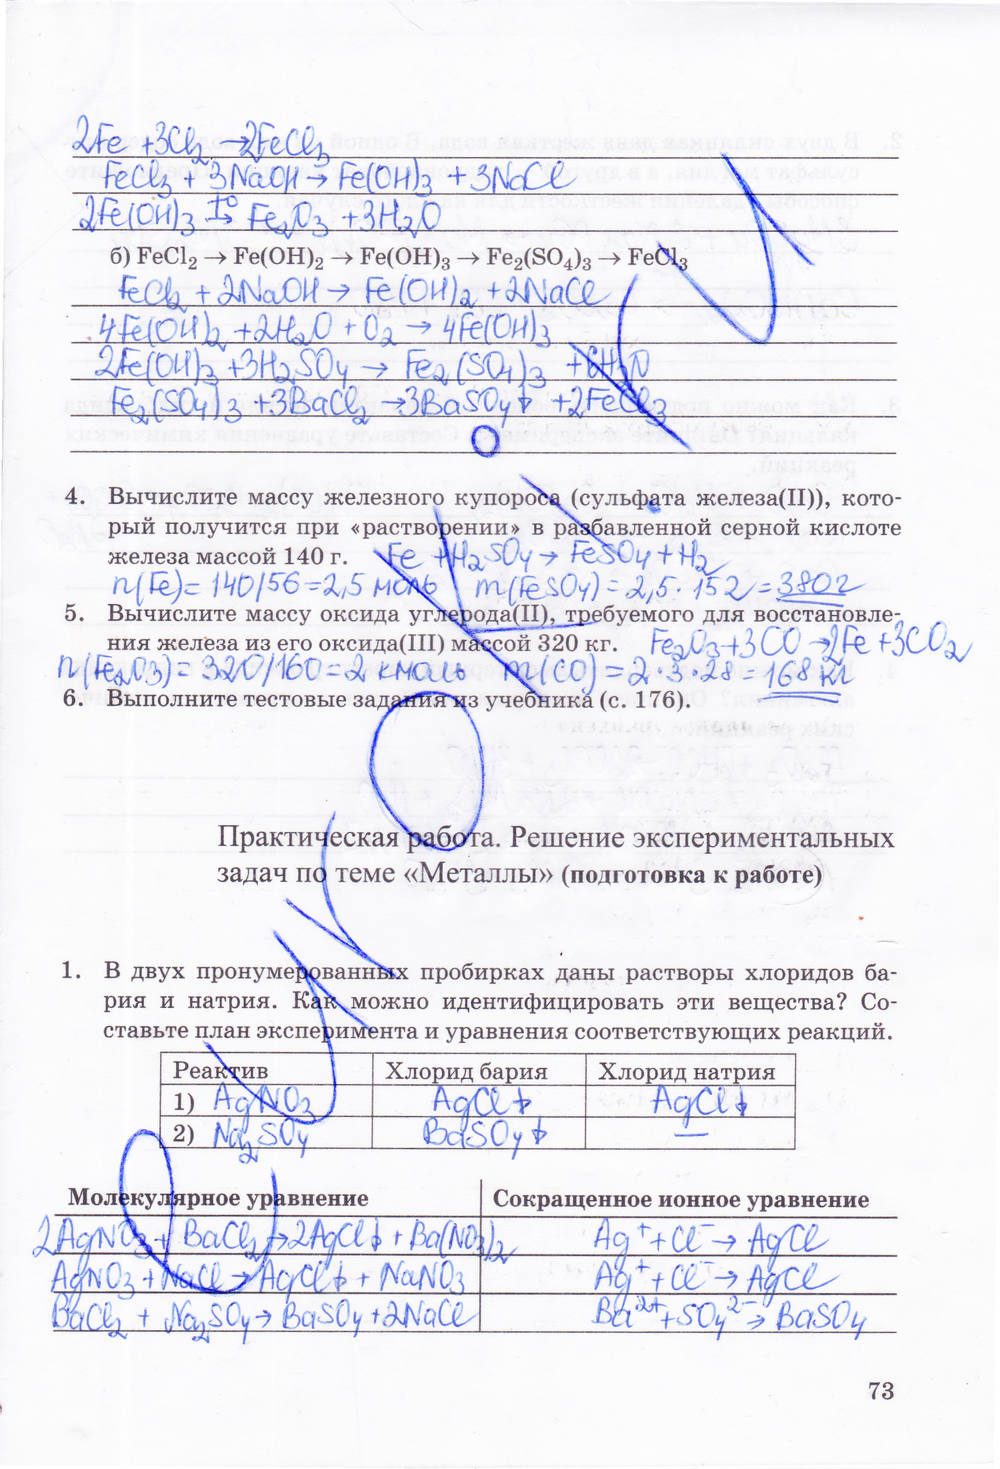 2Fe + 3Cl₂ → 2FeCl₃
FeCl₃ + 3NaOH → Fe(OH)₃ + 3NaCl
2Fe(OH)₃ t°→ Fe₂O₃ + 3H₂O
б) FeCl₂ → Fe(OH)₂ → Fe(OH)₃ → Fe₂(SO₄)₃ → FeCl₃
FeCl₂ + 2NaOH → Fe(OH)₂ + 2NaCl
4Fe(OH)₂ + 2H₂O + O₂ → 4Fe(OH)₃
2Fe(OH)₃ + 3H₂SO₄ → Fe₂(SO₄)₃ + 6H₂O
Fe₂(SO₄)₃ + 3BaCl₂ → 3BaSO₄↓ + 2FeCl₃
4. Вычислите массу железного купороса (сульфата железа(II)), кото-
рый получится при «растворении» в разбавленной серной кислоте
железа массой 140 г. Fe + H₂SO₄ → FeSO₄ + H₂
n(Fe) = 140/56 = 2,5 моль m(FeSO₄) = 2,5 · 152 = 380г
5. Вычислите массу оксида углерода(II), требуемого для восстановле-
ния железа из его оксида(III) массой 320 кг. Fe₂O₃ + 3CO → 2Fe + 3CO₂
n(Fe₂O₃) = 320/160 = 2 кмоль m(CO) = 2 · 3 · 28 = 168кг
6. Выполните тестовые задания из учебника (с. 176).
Практическая работа. Решение экспериментальных
задач по теме «Металлы» (подготовка к работе)
1. В двух пронумерованных пробирках даны растворы хлоридов ба-
рия и натрия. Как можно идентифицировать эти вещества? Со-
ставьте план эксперимента и уравнения соответствующих реакций.
Реактив Хлорид бария Хлорид натрия
1) AgNO₃ AgCl↓ AgCl↓
2) Na₂SO₄ BaSO₄↓ —
Молекулярное уравнение Сокращенное ионное уравнение
2AgNO₃ + BaCl₂ → 2AgCl↓ + Ba(NO₃)₂ Ag⁺ + Cl⁻ → AgCl
AgNO₃ + NaCl → AgCl↓ + NaNO₃ Ag⁺ + Cl⁻ → AgCl
BaCl₂ + Na₂SO₄ → BaSO₄ + 2NaCl Ba²⁺ + SO₄²⁻ → BaSO₄
73